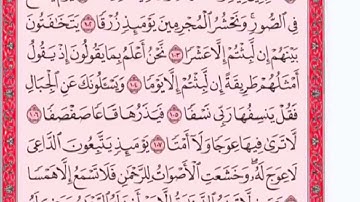 فِى ٱلصُّورِ ۚ وَنَحْشُرُ ٱلْمُجْرِمِينَ يَوْمَئِذٍ زُرْقًا ١٠٢ يَتَخَٰفَتُونَ
بَيْنَهُمْ إِن لَّبِثْتُمْ إِلَّا عَشْرًا ١٠٣ نَّحْنُ أَعْلَمُ بِمَا يَقُولُونَ إِذْ يَقُولُ
أَمْثَلُهُمْ طَرِيقَةً إِن لَّبِثْتُمْ إِلَّا يَوْمًا ١٠٤ وَيَسْـَٔلُونَكَ عَنِ ٱلْجِبَالِ
فَقُلْ يَنسِفُهَا رَبِّى نَسْفًا ١٠٥ فَيَذَرُهَا قَاعًا صَفْصَفًا ١٠٦
لَّا تَرَىٰ فِيهَا عِوَجًا وَلَآ أَمْتًا ١٠٧ يَوْمَئِذٍ يَتَّبِعُونَ ٱلدَّاعِىَ
لَا عِوَجَ لَهُۥ ۖ وَخَشَعَتِ ٱلْأَصْوَاتُ لِلرَّحْمَٰنِ فَلَا تَسْمَعُ إِلَّا هَمْسًا